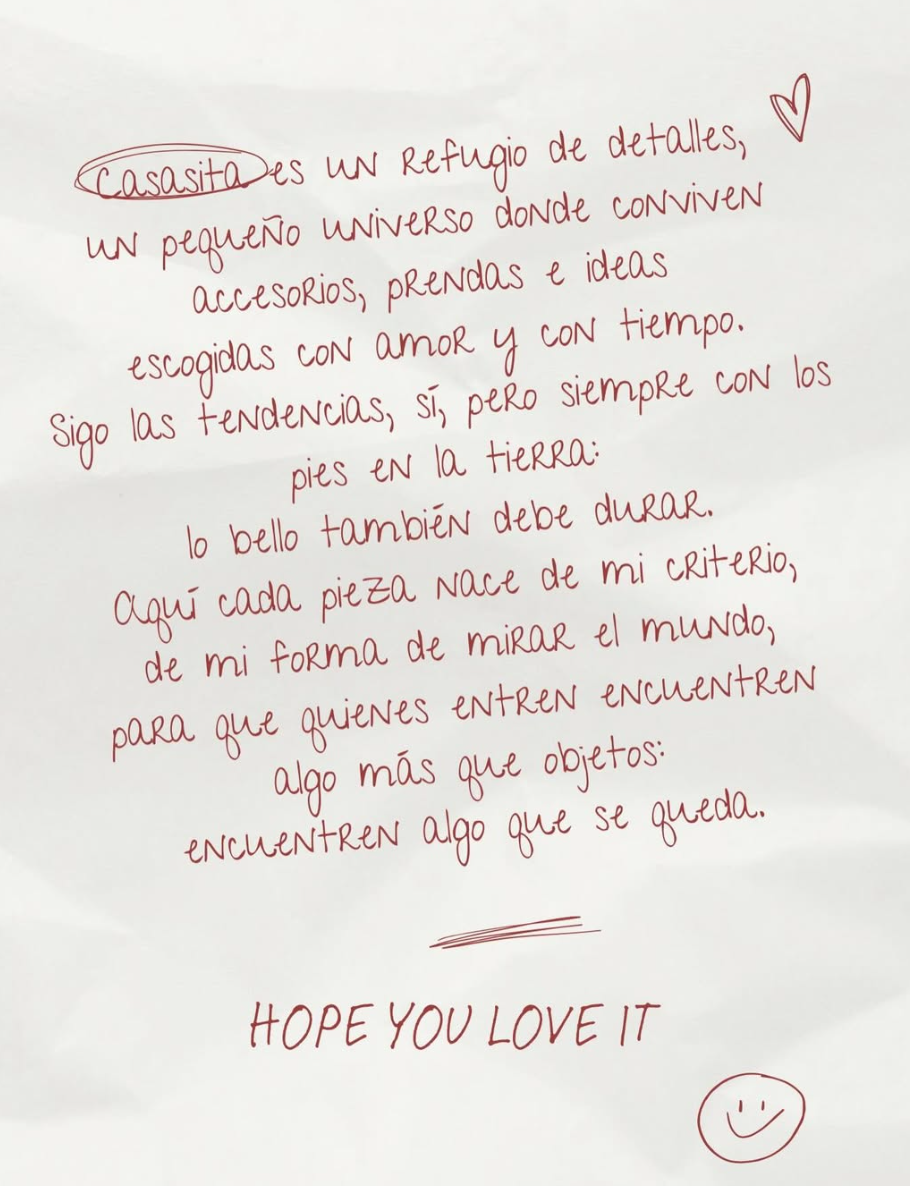 Casasita es un refugio de detalles,
un pequeño universo donde conviven
accesorios, prendas e ideas
escogidas con amor y con tiempo.
Sigo las tendencias, sí, pero siempre con los
pies en la tierra:
lo bello también debe durar.
Aquí cada pieza nace de mi criterio,
de mi forma de mirar el mundo,
para que quienes entren encuentren
algo más que objetos:
encuentren algo que se queda.
HOPE YOU LOVE IT